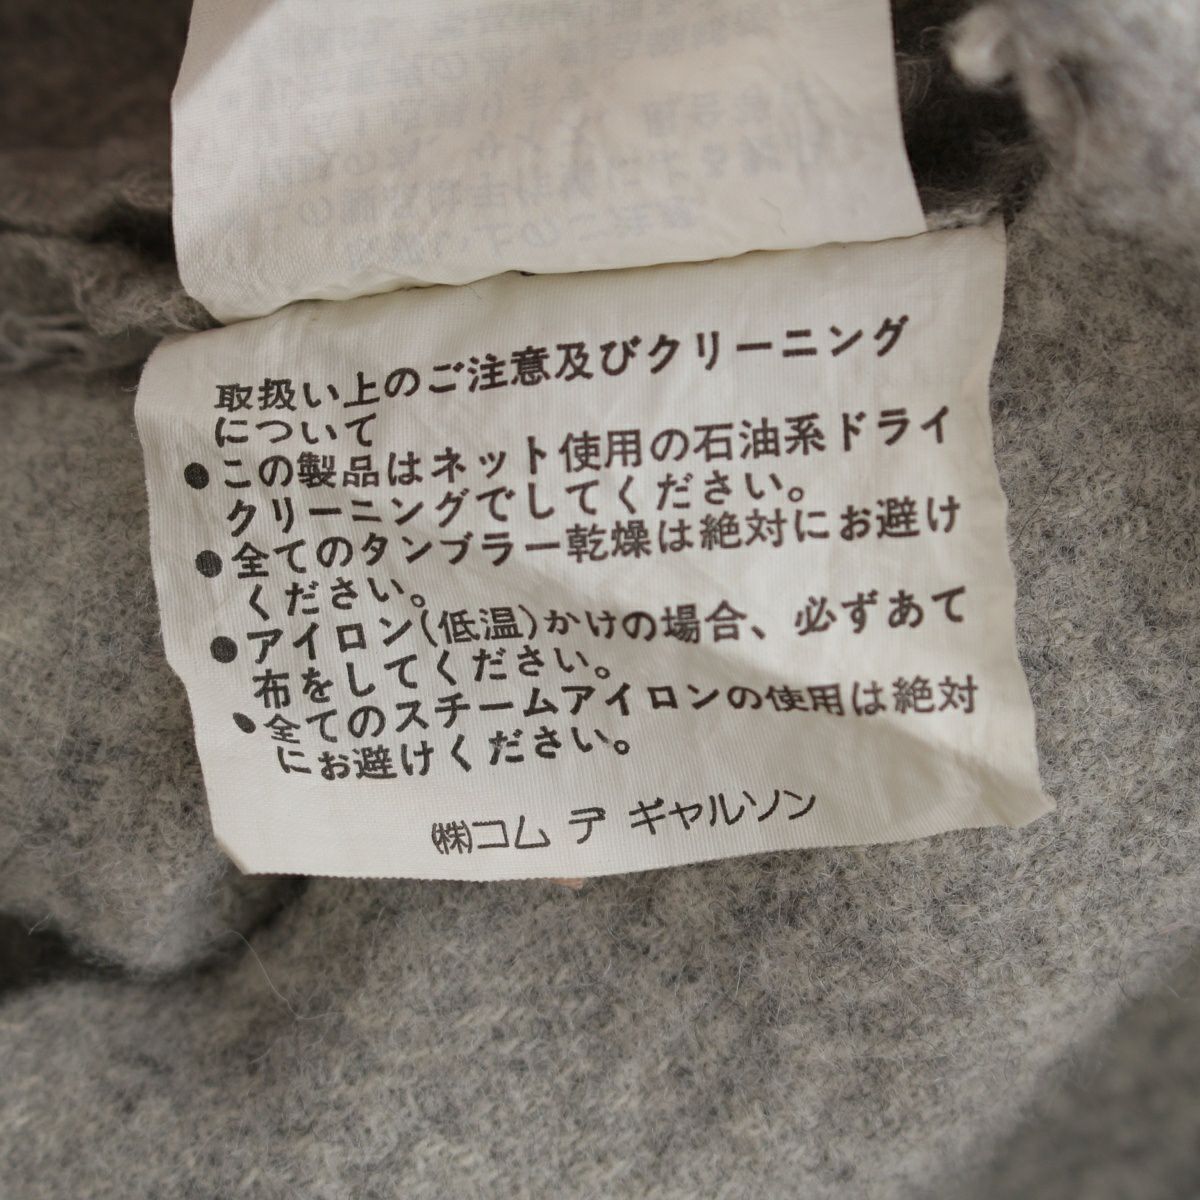 取扱い上のご注意及びクリーニング
について
●この製品はネット使用の石油系ドライ
クリーニングでしてください。
●全てのタンブラー乾燥は絶対にお避け
ください。
●アイロン(低温)かけの場合、必ずあて
布をしてください。
●全てのスチームアイロンの使用は絶対
にお避けください。
㈱コム デ ギャルソン